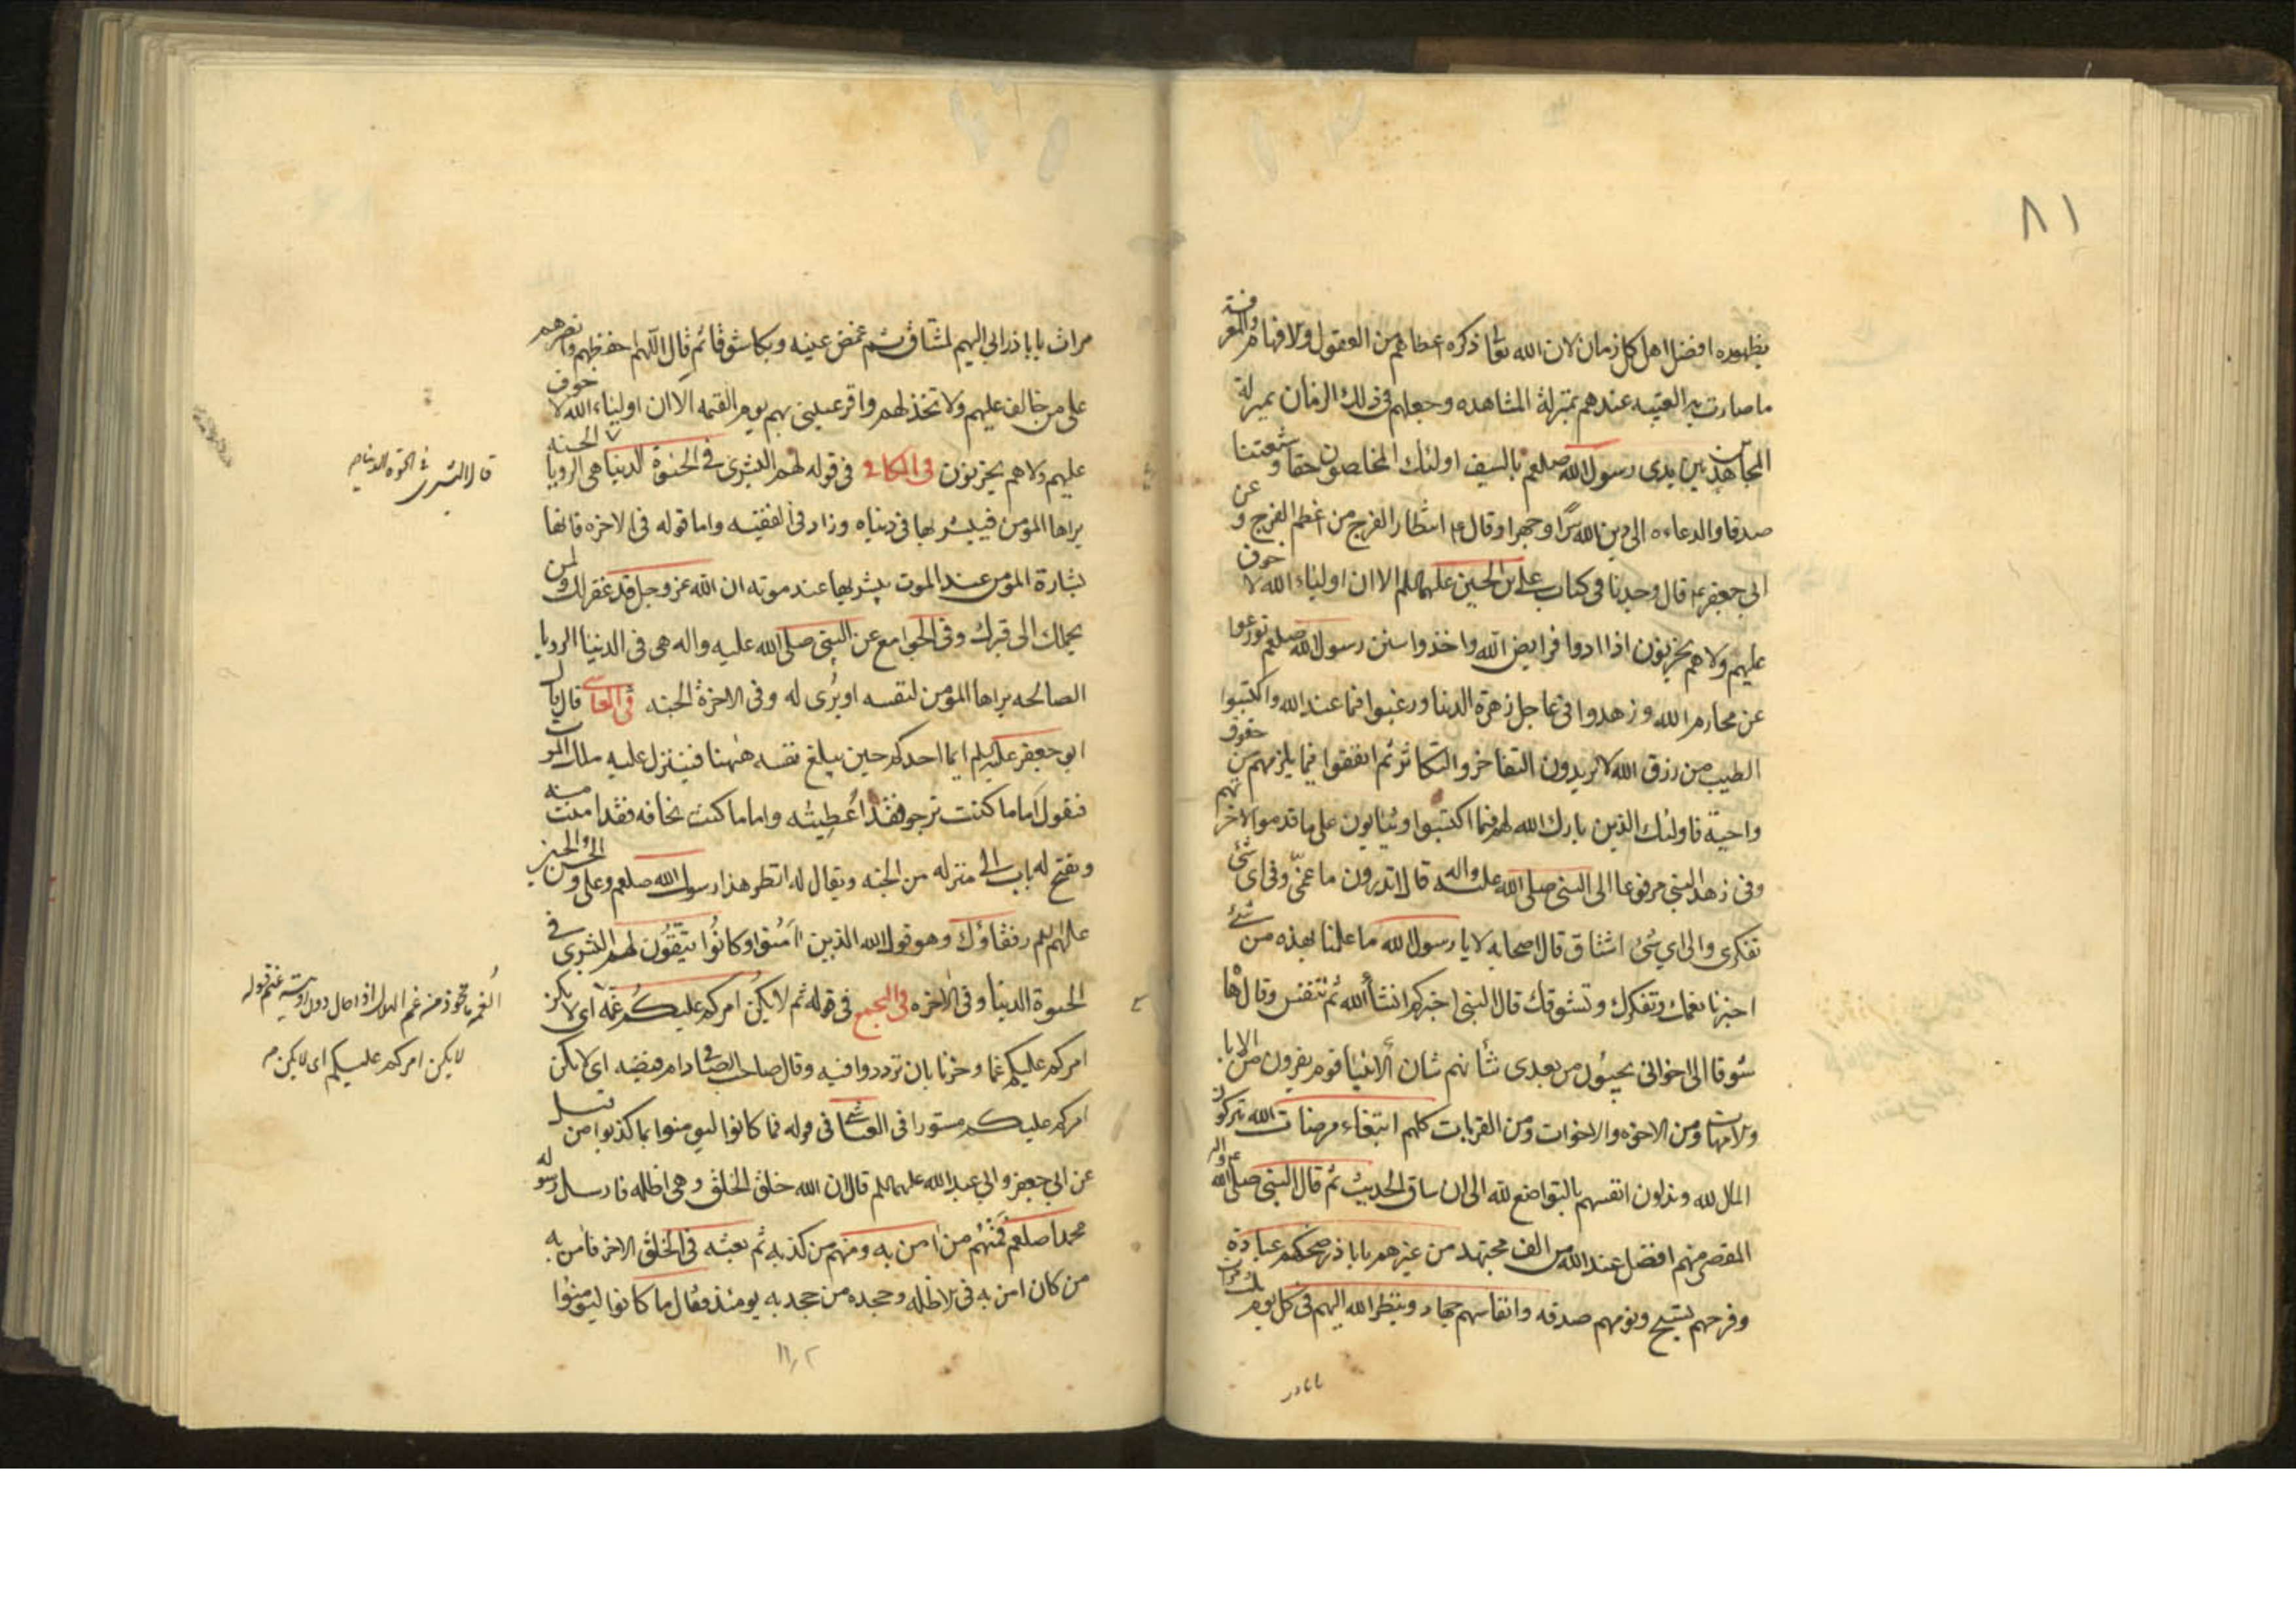 ٨١
بظهوره افضل اهل كل زمان لان الله تعا ذكره اعطاهم من العقول والافهام والمعرفة
ما صارت به الغيبه عندهم بمنزلة المشاهده وجعلهم فى ذلك الزمان بمنزلة
المجاهدين بين يدى رسول الله صلعم بالسيف اولئك المخلصون حقا وشيعتنا
صدقا والدعاه الى دين الله سرًا وجهرا وقال ع انتظار الفرج من اعظم الفرج و عن
ابى جعفر ع قال وجدنا فى كتاب على بن الحسين عليهما السلم الا ان اولياء الله لا خوف
عليهم ولا هم يحزنون اذا ادوا فرايض الله واخذوا سنن رسول الله صلعم تورعوا
عن محارم الله وزهدوا فى عاجل زهرة الدنيا ورغبوا فيما عند الله واكتسبوا
الطيب من رزق الله لا يريدون التفاخر والتكاثر ثم انفقوا فيما يلزمهم من حقوق
واجبة فاولئك الذين بارك الله لهم فيما اكتسبوا ويثابون على ما قدموا لاخرتهم
وفى زهد النبى مرفوعا الى النبى صلى الله عليه واله قال اتدرون ما غمّى وفى اى شئ
تفكرى والى اي شئ اشتاق قال اصحابه لا يا رسول الله ما علمنا بهذه من شئ
اخبرنا بغمك وتفكرك وتشوقك قال النبى اخبركم انشأ الله ثم تنفس وقال هاه
شوقا الى اخوانى يجيئون من بعدى شأنهم شان الانبيا قوم يفرون من الابا
والامهات ومن الاخوه والاخوات ومن القرابات كلهم ابتغاء مرضات الله يتركون
المال لله ويذلون انفسهم بالتواضع لله الى ان ساق الحديث ثم قال النبى صلى الله عليه واله
المقصر منهم افضل عند الله من الف مجتهد من غيرهم يا باذر ضحكهم عبادة
وفرحهم تسبيح ونومهم صدقه وانفاسهم جهاد وينظر الله اليهم فى كل يوم ثلث مرات
يا باذر
مرات يا باذر انى اليهم لمشتاق ثم غمض عينيه وبكا شوقا ثم قال اللهم احفظهم وانصرهم
على من خالف عليهم ولا تخذلهم واقر عينى بهم يوم القيمه الا ان اولياء الله لا خوف
عليهم ولا هم يحزنون فى الكافى فى قوله لهم البشرى فى الحيوة الدنيا هى الرويا الحسنه
يراها المؤمن فيبشر بها فى دنياه وزاد فى الفقيه واما قوله فى الاخره فانها
بشارة المؤمن عند الموت يبشر بها عند موته ان الله عز وجل قد غفر لك ولمن
يحملك الى قبرك وفى الجوامع عن النبى صلى الله عليه واله هى فى الدنيا الرويا
الصالحه يراها المؤمن لنفسه او يُرى له وفى الاخرة الجنه فى العياشى قال قال
ابو جعفر عليه السلم انما احدكم حين يبلغ نفسه ههنا فينزل عليه ملك الموت
فيقول اما ما كنت ترجو فقد اُعطيته واما ما كنت تخافه فقد امنت منه
ويفتح له باب الى منزله من الجنه ويقال له انظر هذا رسول الله صلعم وعلى والحسن والحسين
عليهم السلم رفقاؤك وهو قول الله الذين آمنوا وكانوا يتقون لهم البشرى فى
الحيوة الدنيا وفى الاخره فى المجمع فى قوله ثم لا يكن امركم عليكم غمة اى لا يكن
امركم عليكم غما وحزنا بان ترددوا فيه وقال صاحب الصافى دام فيضه اى لا يكن
امركم عليكم مستورا فى العياشى فى قوله فما كانوا ليومنوا بما كذبوا من قبل
عن ابي جعفر وابي عبد الله عليهما السلم قال ان الله خلق الخلق وهى اظله فارسل رسوله
محمدا صلعم فمنهم من آمن به ومنهم من كذبه ثم بعثه فى الخلق الاخر فآمن به
من كان امن به فى الاظله وجحده من جحد به يومئذ فقال ما كانوا ليومنوا
لا يكن امركم عليكم اى لا يكن